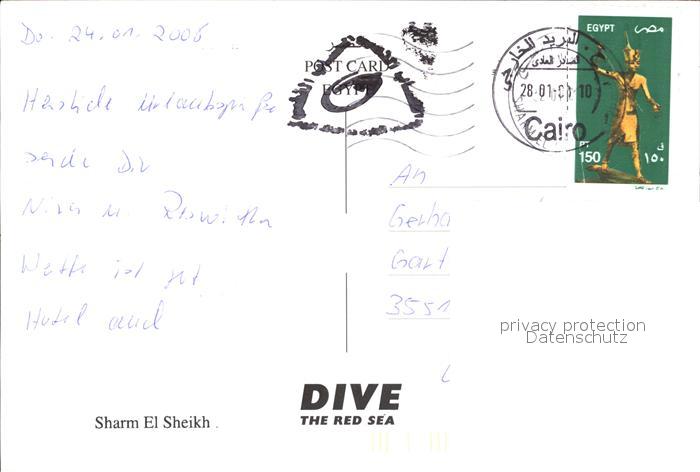 Do. 24.01.2006
Herzliche Urlaubsgrüße
sende Dir
Wetter ist gut
Hotel auch
مصر
POST CARD
EGYPT
البريد الخارجي
الصادر العادى
28-01-
10
Cairo
EGYPT مصر
PT 150 ١٥٠ ق
An
Gerha
Gart
3551
privacy protection
Datenschutz
DIVE
THE RED SEA
Sharm El Sheikh .